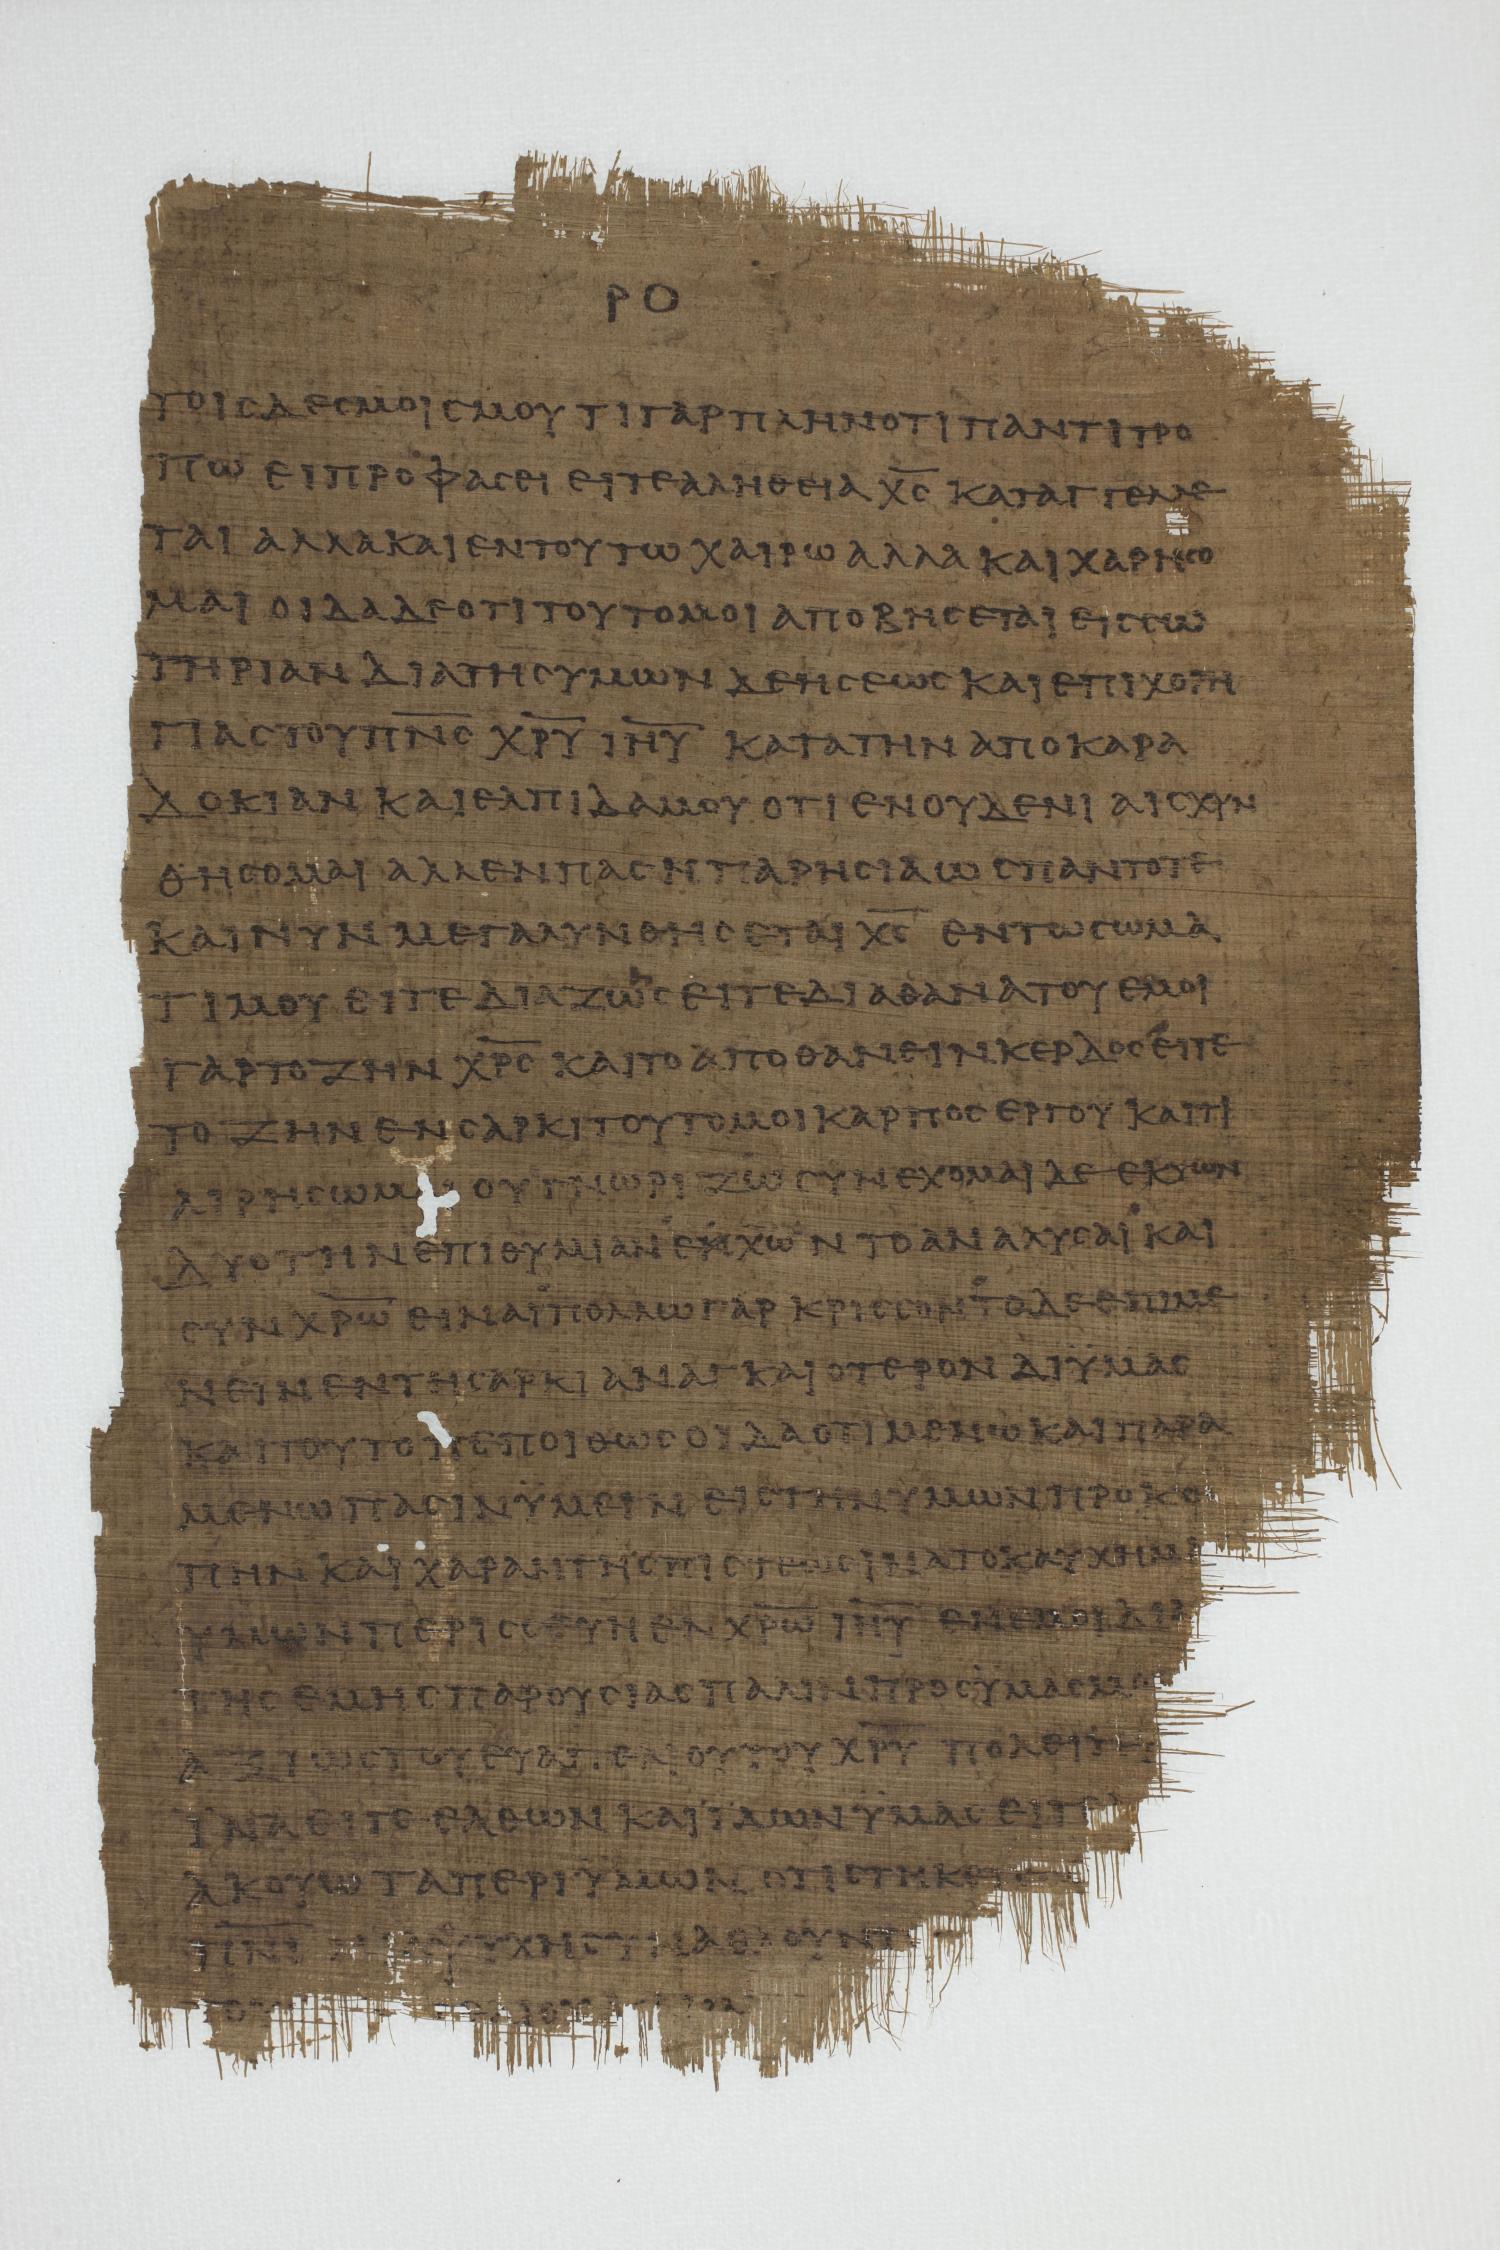 ΡΟ
ΤΟΙϹ ΔΕϹΜΟΙϹ ΜΟΥ ΤΙ ΓΑΡ ΠΛΗΝ ΟΤΙ ΠΑΝΤΙ ΤΡΟ
ΠΩ ΕΙ ΠΡΟΦΑϹΕΙ ΕΙΤΕ ΑΛΗΘΕΙΑ Χ̅Ϲ̅ ΚΑΤΑΓΓΕΛΛΕ
ΤΑΙ ΑΛΛΑ ΚΑΙ ΕΝ ΤΟΥΤΩ ΧΑΙΡΩ ΑΛΛΑ ΚΑΙ ΧΑΡΗϹΟ
ΜΑΙ ΟΙΔΑ ΔΕ ΟΤΙ ΤΟΥΤΟ ΜΟΙ ΑΠΟΒΗϹΕΤΑΙ ΕΙϹ ϹΩ
ΤΗΡΙΑΝ ΔΙΑ ΤΗϹ ΥΜΩΝ ΔΕΗϹΕΩϹ ΚΑΙ ΕΠΙΧΟΡΗ
ΓΙΑϹ ΤΟΥ Π̅Ν̅Ϲ̅ Χ̅Ρ̅Υ̅ Ι̅Η̅Υ̅ ΚΑΤΑ ΤΗΝ ΑΠΟΚΑΡΑ
ΔΟΚΙΑΝ ΚΑΙ ΕΛΠΙΔΑ ΜΟΥ ΟΤΙ ΕΝ ΟΥΔΕΝΙ ΑΙϹΧΥΝ
ΘΗϹΟΜΑΙ ΑΛΛ ΕΝ ΠΑϹΗ ΠΑΡΗϹΙΑ ΩϹ ΠΑΝΤΟΤΕ
ΚΑΙ ΝΥΝ ΜΕΓΑΛΥΝΘΗϹΕΤΑΙ Χ̅Ϲ̅ ΕΝ ΤΩ ϹΩΜΑ
ΤΙ ΜΟΥ ΕΙΤΕ ΔΙΑ ΖΩΗϹ ΕΙΤΕ ΔΙΑ ΘΑΝΑΤΟΥ ΕΜΟΙ
ΓΑΡ ΤΟ ΖΗΝ Χ̅Ρ̅Ϲ̅ ΚΑΙ ΤΟ ΑΠΟΘΑΝΕΙΝ ΚΕΡΔΟϹ ΕΙΤΕ
ΤΟ ΖΗΝ ΕΝ ϹΑΡΚΙ ΤΟΥΤΟ ΜΟΙ ΚΑΡΠΟϹ ΕΡΓΟΥ ΚΑΙ ΤΙ
ΑΙΡΗϹΩΜΑΙ ΟΥ ΓΝΩΡΙΖΩ ϹΥΝΕΧΟΜΑΙ ΔΕ ΕΚ ΤΩΝ
ΔΥΟ ΤΗΝ ΕΠΙΘΥΜΙΑΝ ΕΧΩΝ ΤΟ ΑΝΑΛΥϹΑΙ ΚΑΙ
ϹΥΝ Χ̅Ρ̅Ω̅ ΕΙΝΑΙ ΠΟΛΛΩ ΓΑΡ ΚΡΙϹϹΟΝ ΤΟ ΔΕ ΕΠΙΜΕ
ΝΕΙΝ ΕΝ ΤΗ ϹΑΡΚΙ ΑΝΑΓΚΑΙΟΤΕΡΟΝ ΔΙ ΫΜΑϹ
ΚΑΙ ΤΟΥΤΟ ΠΕΠΟΙΘΩϹ ΟΙΔΑ ΟΤΙ ΜΕΝΩ ΚΑΙ ΠΑΡΑ
ΜΕΝΩ ΠΑϹΙΝ ΫΜΕΙΝ ΕΙϹ ΤΗΝ ΥΜΩΝ ΠΡΟΚΟ
ΠΗΝ ΚΑΙ ΧΑΡΑΝ ΤΗϹ ΠΙϹΤΕΩϹ ΙΝΑ ΤΟ ΚΑΥΧΗΜΑ
ΥΜΩΝ ΠΕΡΙϹϹΕΥΗ ΕΝ Χ̅Ρ̅Ω̅ Ι̅Η̅Υ̅ ΕΝ ΕΜΟΙ ΔΙΑ
ΤΗϹ ΕΜΗϹ ΠΑΡΟΥϹΙΑϹ ΠΑΛΙΝ ΠΡΟϹ ΫΜΑϹ ΜΟ
ΑΞΙΩϹ ΤΟΥ ΕΥΑΓΓΕΛΙΟΥ ΤΟΥ Χ̅Ρ̅Υ̅ ΠΟΛΕΙΤΕ
ΙΝΑ ΕΙΤΕ ΕΛΘΩΝ ΚΑΙ ΪΔΩΝ ΫΜΑϹ ΕΙΤΕ
ΑΚΟΥΩ ΤΑ ΠΕΡΙ ΫΜΩΝ ΟΤΙ ϹΤΗΚΕ
Π̅Ν̅Ι̅ ΜΙΑ ΨΥΧΗ ϹΥΝΑΘΛΟΥΝΤ